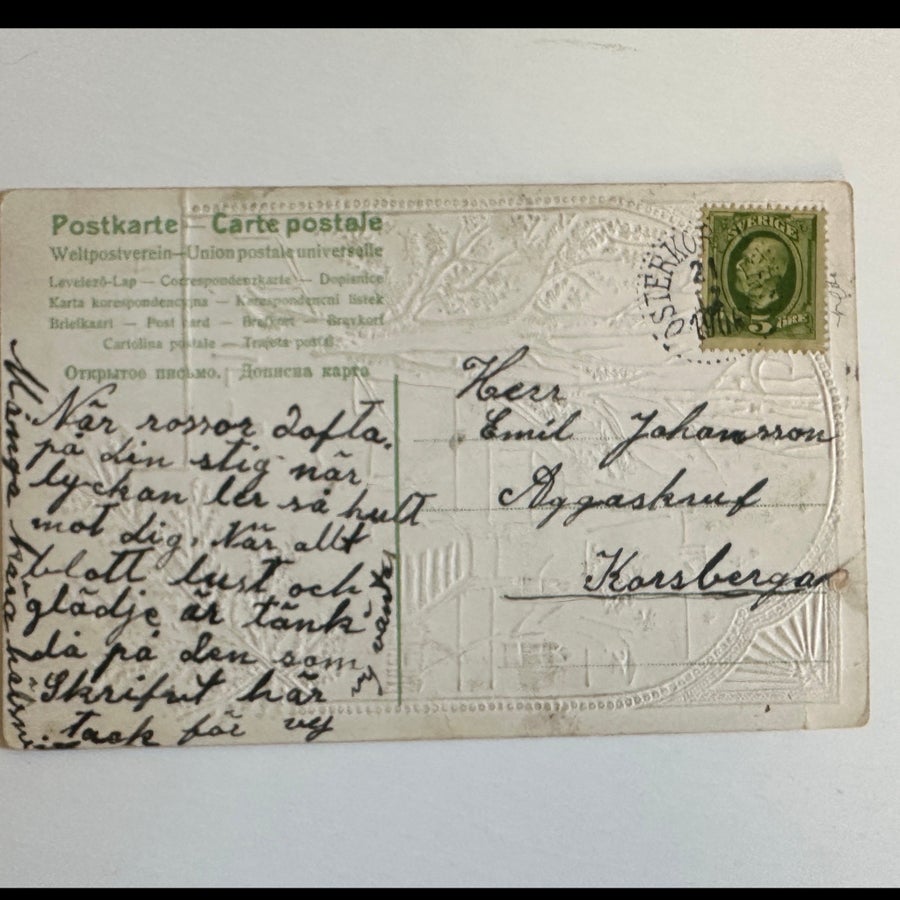 Postkarte — Carte postale
Weltpostverein — Union postale universelle
Levelező-Lap — Correspondenzkarte — Dopisnice
Karta korespondencyjna — Korespondencni listek
Briefkaart — Post card — Brefkort — Brevkort
Cartolina postale — Trajeta postal.
Открытое письмо. Дописна карта
När rossor dofta
på din stig när
lyckan ler så hult
mot dig. När allt
blott lust och
glädje är tänk
då på den som
Skrifvit här
tack för vy
Många kära
Herr
Emil Johansson
Aggaskruf
Korsberga
SVERIGE
5 ÖRE
ÖSTERKOR
21